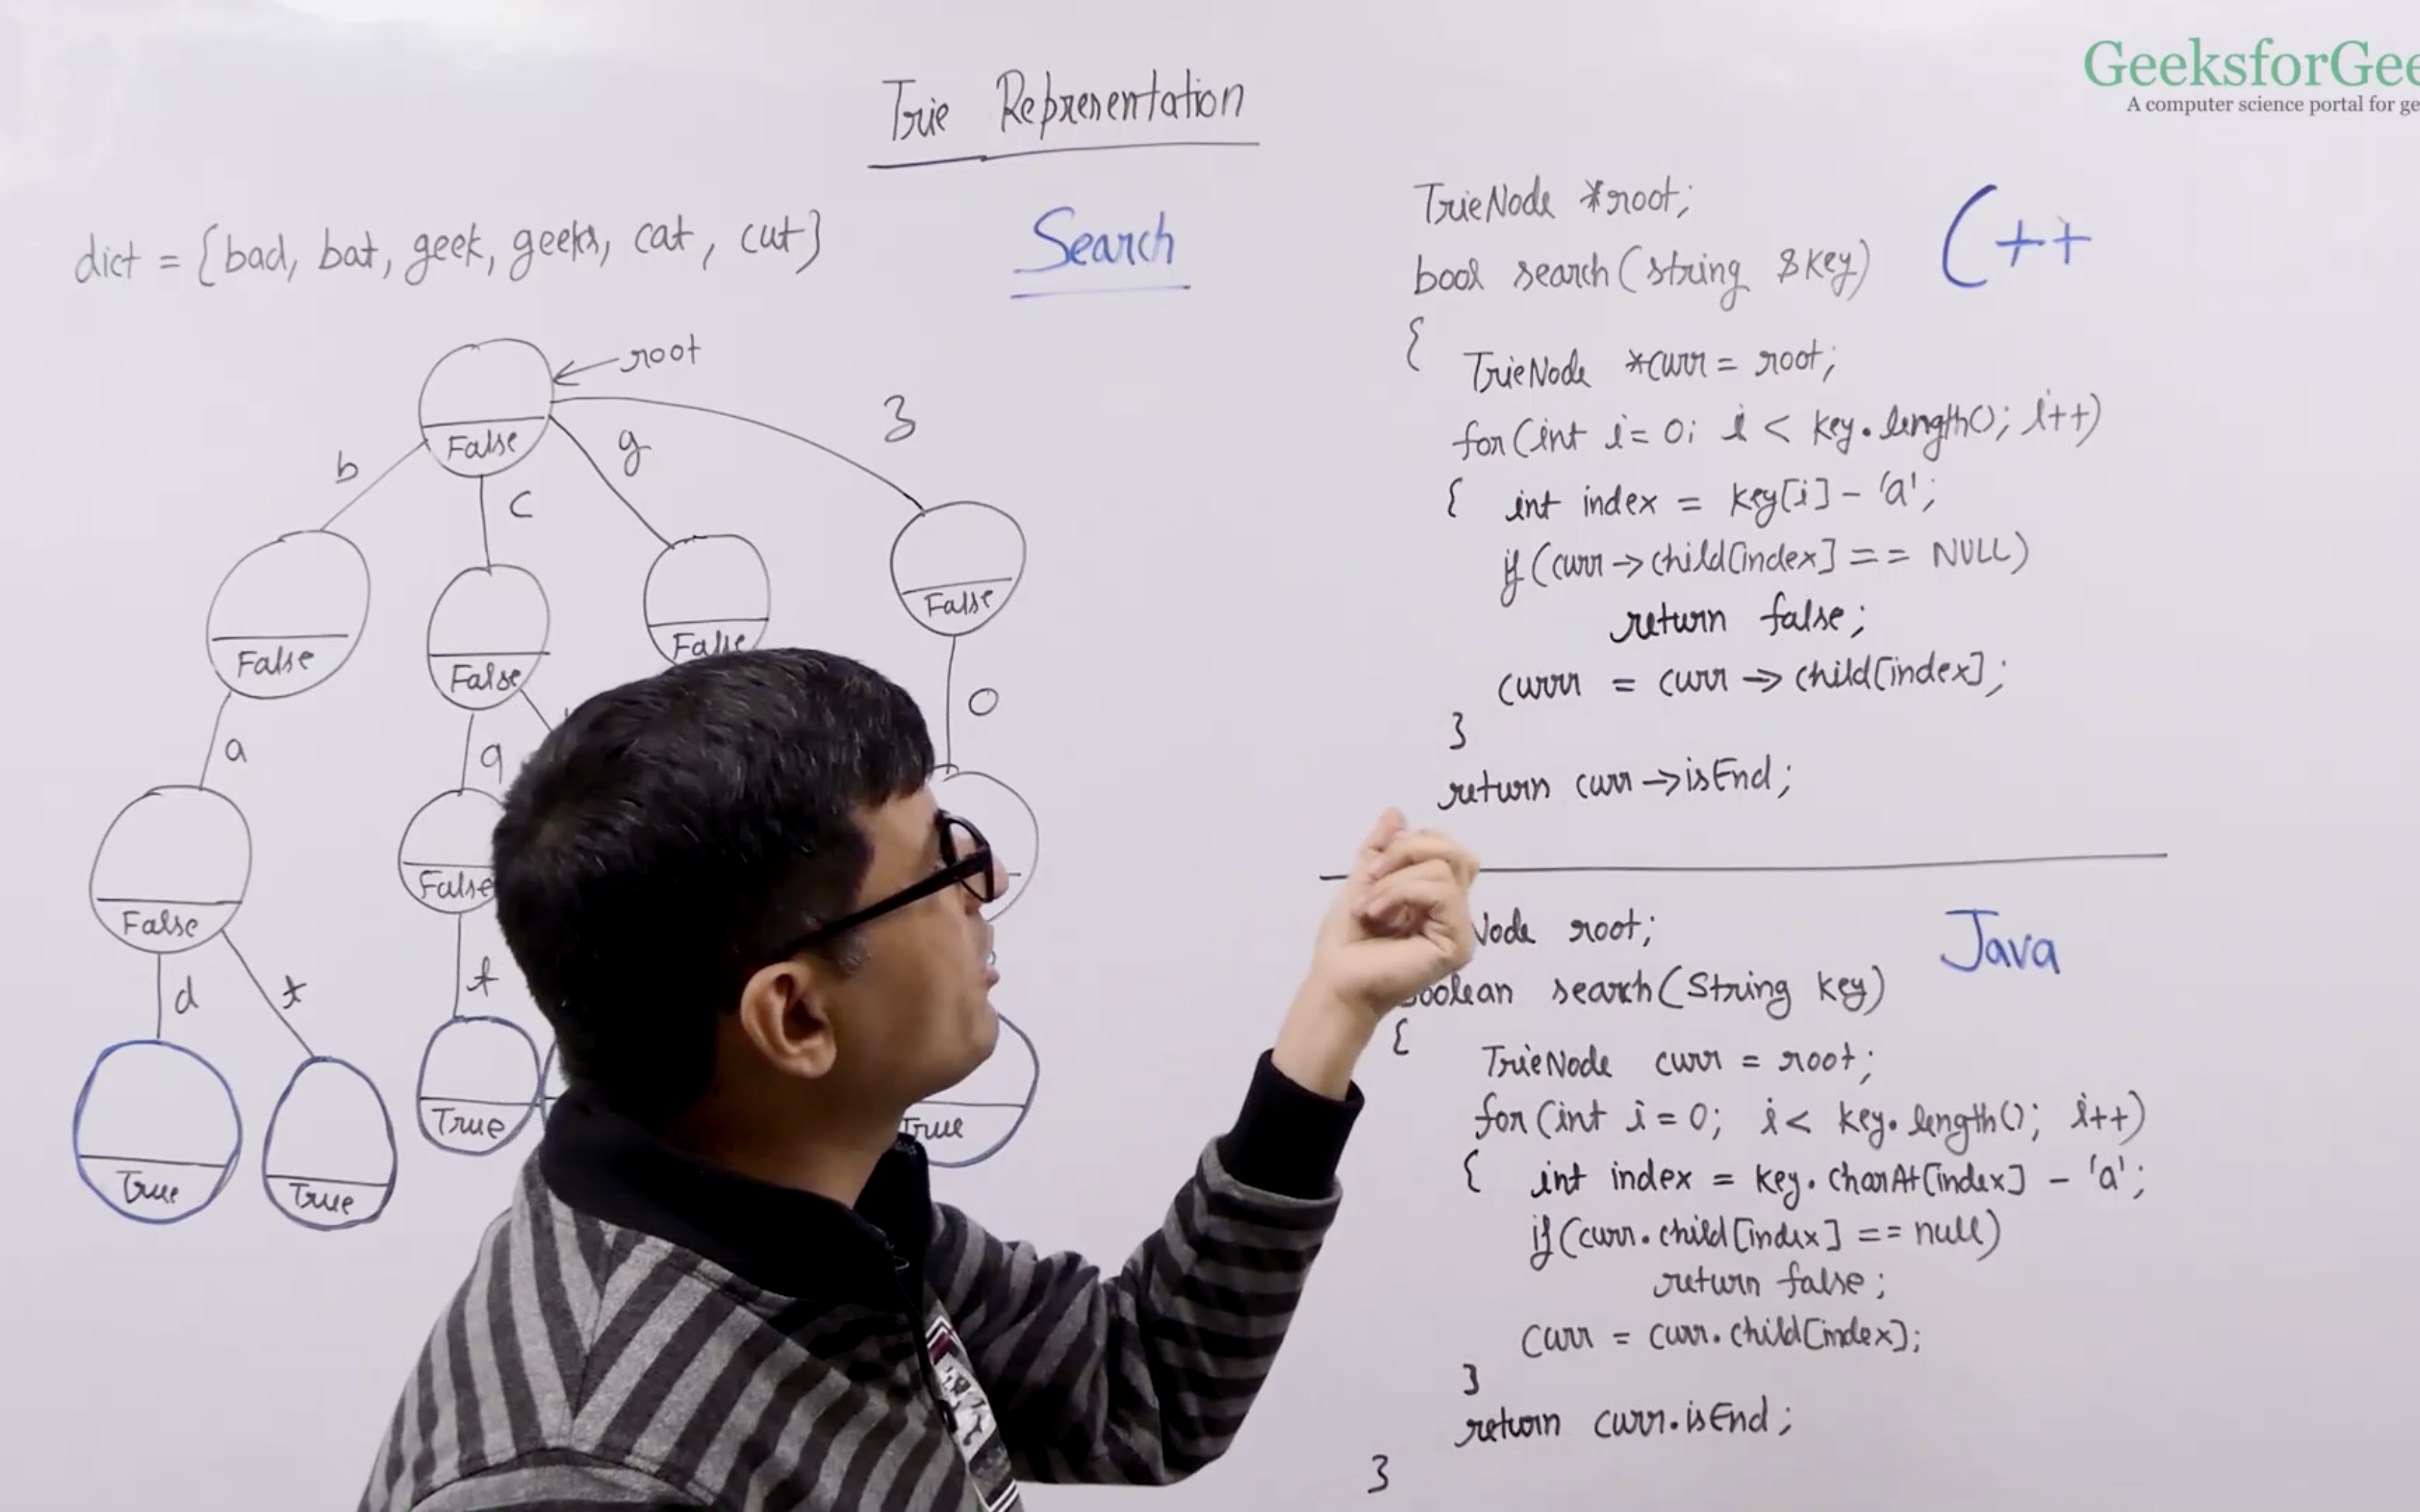 GeeksforGee
A computer science portal for ge
Trie Representation
Search
dict = {bad, bat, geek, geeks, cat, cut}
root
False
b
c
g
z
False
False
False
False
a
a
o
False
False
d
t
t
True
True
True
True
C++
TrieNode *root;
bool search(string &key)
{
TrieNode *curr = root;
for(int i=0; i < key.length(); i++)
{ int index = key[i] - 'a';
if(curr->child[index] == NULL)
return false;
curr = curr->child[index];
}
return curr->isEnd;
Java
Node root;
boolean search(String key)
{
TrieNode curr = root;
for(int i=0; i< key.length(); i++)
{ int index = key.charAt[index] - 'a';
if(curr.child[index] == null)
return false;
curr = curr.child[index];
}
return curr.isEnd;
}